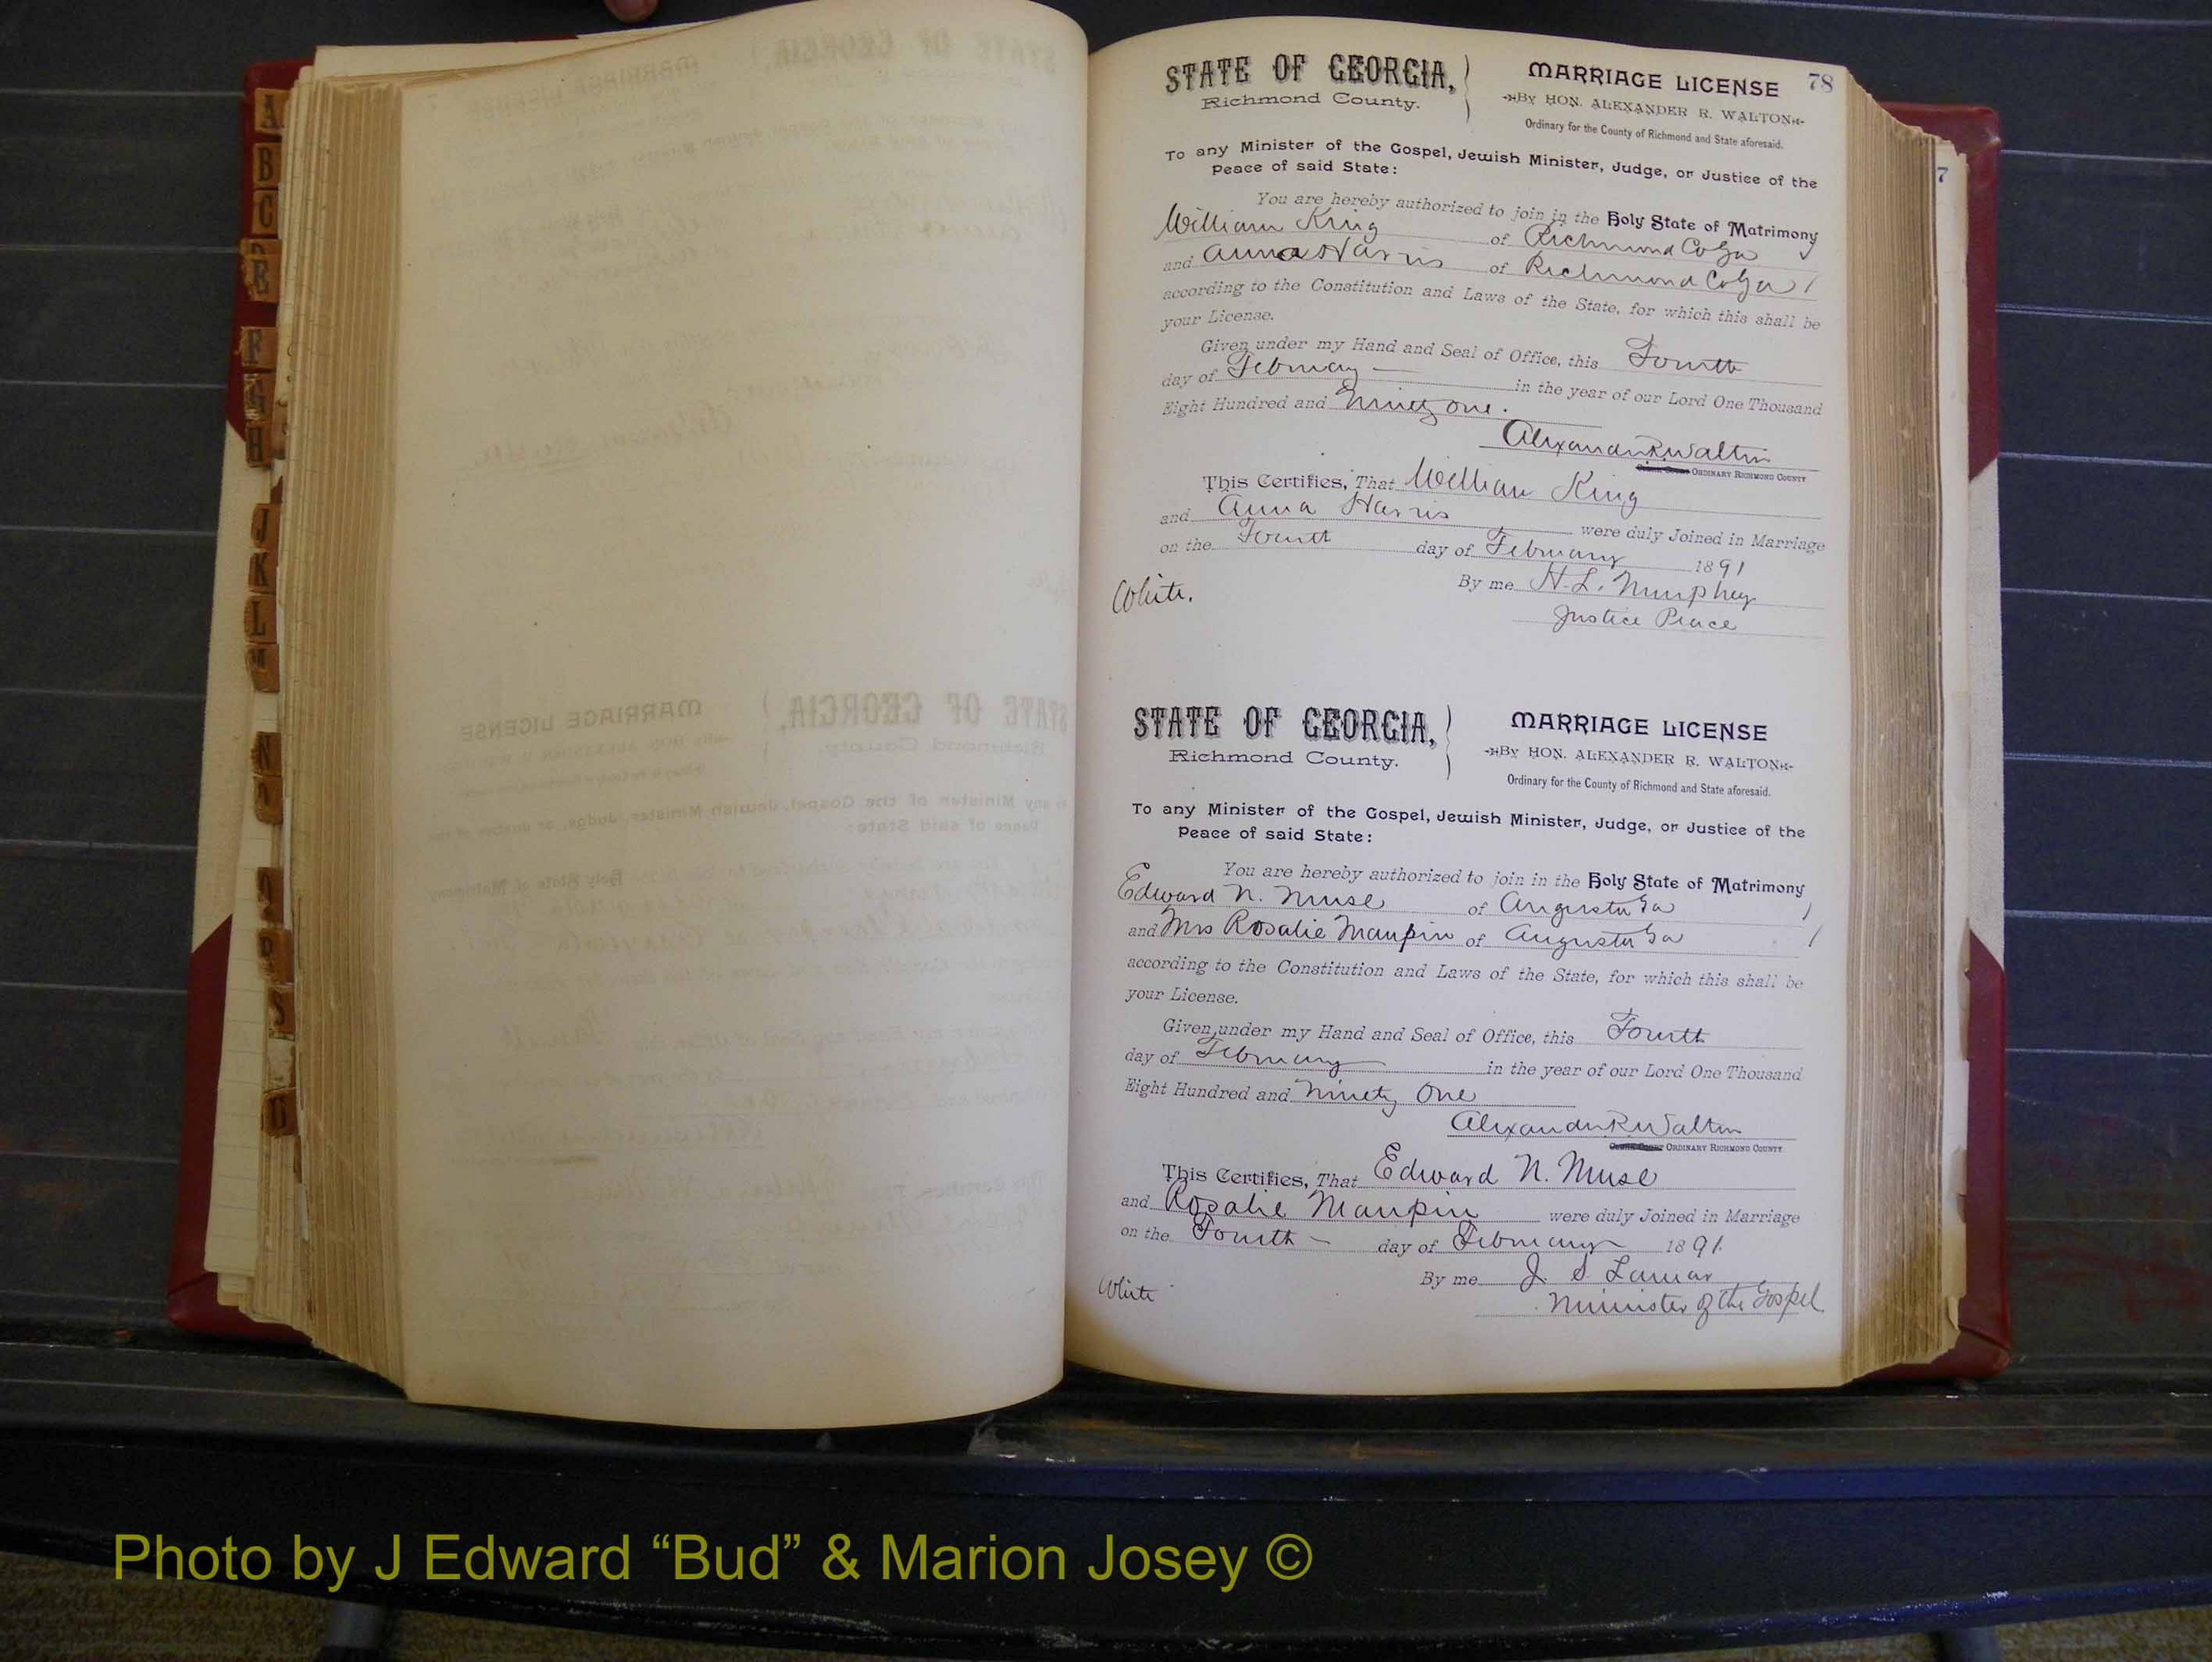 A
B
C
E
F
G
H
J
K
L
M
N
O
Q
P
S
78
7
STATE OF GEORGIA,
Richmond County.
MARRIAGE LICENSE
BY HON. ALEXANDER R. WALTON
Ordinary for the County of Richmond and State aforesaid.
To any Minister of the Gospel, Jewish Minister, Judge, or Justice of the
Peace of said State:
You are hereby authorized to join in the Holy State of Matrimony
William King of Richmond Co Ga
and Anna Harris of Richmond Co Ga
according to the Constitution and Laws of the State, for which this shall be
your License.
Given under my Hand and Seal of Office, this Fourth
day of February in the year of our Lord One Thousand
Eight Hundred and Ninety one.
Alexander R. Walton
ORDINARY RICHMOND COUNTY
This Certifies, That William King
and Anna Harris were duly Joined in Marriage
on the Fourth day of February 1891
By me H. L. Murphey
Justice Peace
White.
STATE OF GEORGIA,
Richmond County.
MARRIAGE LICENSE
BY HON. ALEXANDER R. WALTON
Ordinary for the County of Richmond and State aforesaid.
To any Minister of the Gospel, Jewish Minister, Judge, or Justice of the
Peace of said State:
You are hereby authorized to join in the Holy State of Matrimony
Edward N. Muse of Augusta Ga
and Mrs Rosalie Maupin of Augusta Ga
according to the Constitution and Laws of the State, for which this shall be
your License.
Given under my Hand and Seal of Office, this Fourth
day of February in the year of our Lord One Thousand
Eight Hundred and Ninety One
Alexander R. Walton
ORDINARY RICHMOND COUNTY.
This Certifies, That Edward N. Muse
and Rosalie Maupin were duly Joined in Marriage
on the Fourth day of February 1891.
By me J. S. Lamar
Minister of the Gospel
White
Photo by J Edward “Bud” & Marion Josey ©